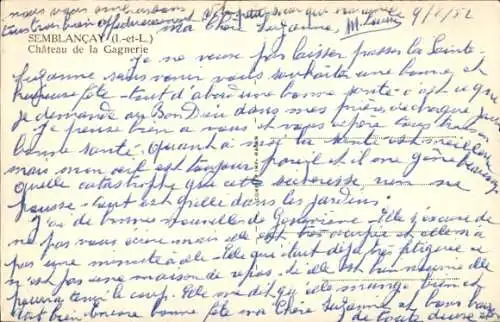 nous vous embrassons
tous trois bien affectueusement
9/8/52
SEMBLANÇAY (I.-et-L.)
Château de la Gagnerie
Ma Chère Suzanne,
Je ne veux pas laisser passer la Sainte-
Suzanne sans venir vous souhaiter une bonne et
heureuse fête - tout d'abord une bonne santé - c'est ce que
je demande au Bon Dieu dans mes prières de chaque jour
Je pense bien à vous et vous espère tous trois en
bonne santé. Quant à moi la santé est meilleure
mais mon œil est toujours pareil et il me gêne beaucoup
Quelle catastrophe que cette sécheresse rien ne
pousse - tout est grillé dans les jardins.
J'ai de bonnes nouvelles de Geneviève - Elle s'excuse de
ne pas vous écrire mais elle est très occupée et elle n'a
pas une minute à elle - Elle que était déjà très fatiguée ce
n'est pas une maison de repos - si elle est bien nourrie elle
pourra tenir le coup. Elle me dit qu'elle mange bien et
tout bien. Encore bonne fête ma Chère Suzanne et bons baisers
de toute